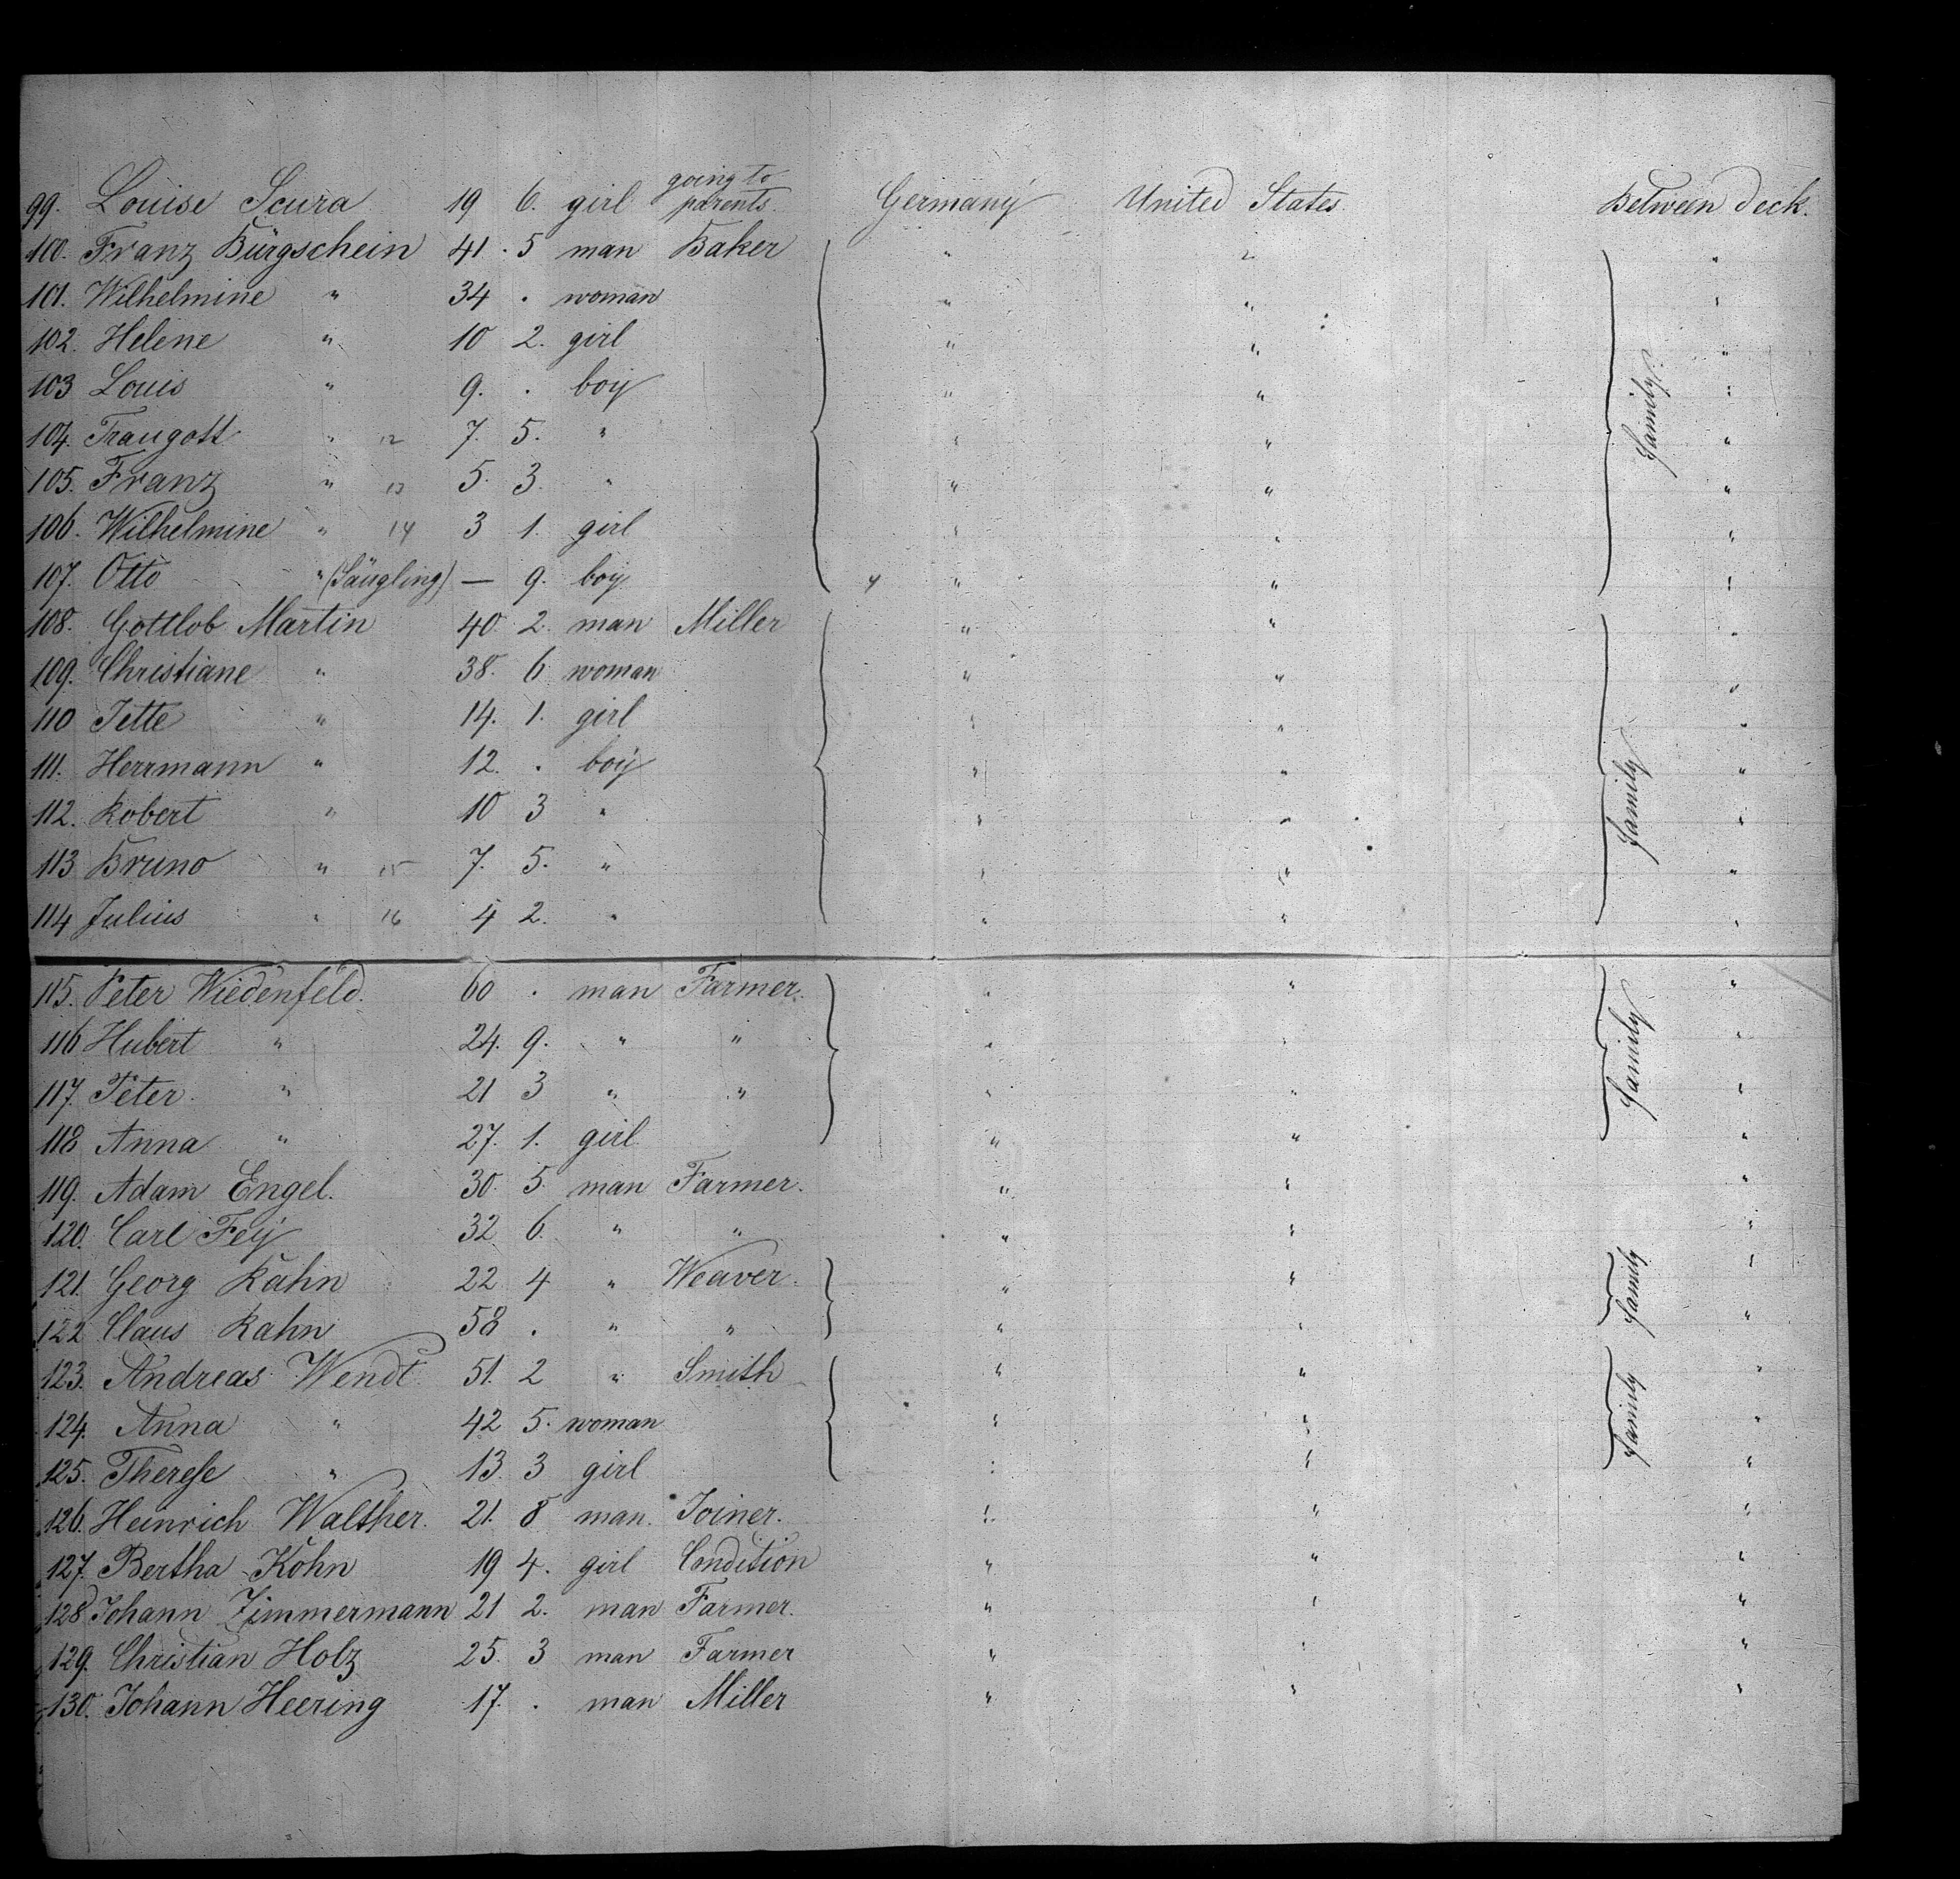 99. Louise Scura 19 6. girl going to parents. Germany United States. Between deck.
100. Franz Bürgschein 41 . 5 man Baker " " "
101. Wilhelmine " 34 . woman " " "
102. Helene " 10 2. girl " " "
103 Louis " 9. . boy " " "
104. Traugott " 12 7. 5. " " " "
105. Franz " 13 5. 3. " " " "
106. Wilhelmine " 14 3 1. girl " " "
107. Otto " (Säugling) — 9. boy " " "
Family.
108. Gottlob Martin 40 2. man Miller " " "
109. Christiane " 38. 6 woman " " "
110 Jette " 14. 1. girl " " "
111. Herrmann " 12. . boy " " "
112. Robert " 10 3 " " " "
113 Bruno " 15 7. 5. " " " "
114 Julius " 16 4 2. " " " "
Family
115. Peter Wiedenfeld. 60 . man Farmer. " " "
116 Hubert " 24. 9. " " " " "
117. Peter. " 21 3 " " " " "
118 Anna " 27. 1. girl " " "
Family
119. Adam Engel. 30. 5. man Farmer. " " "
120. Carl Feÿ 32 6. " " " " "
121. Georg Kahn 22 4 " Weaver. " " "
122 Claus Kahn 58 . " " " " "
Family
123. Andreas Wendt 51. 2 " Smith " " "
124. Anna " 42 5. woman " " "
125. Therese " 13. 3 girl " " "
Family
126. Heinrich Walther. 21. 8 man. Joiner. " " "
127. Bertha Köhn 19 4. girl Condition " " "
128 Johann Zimmermann 21 2. man Farmer. " " "
129. Christian Holz 25. 3 man Farmer " " "
130. Johann Heering 17. . man Miller " " "